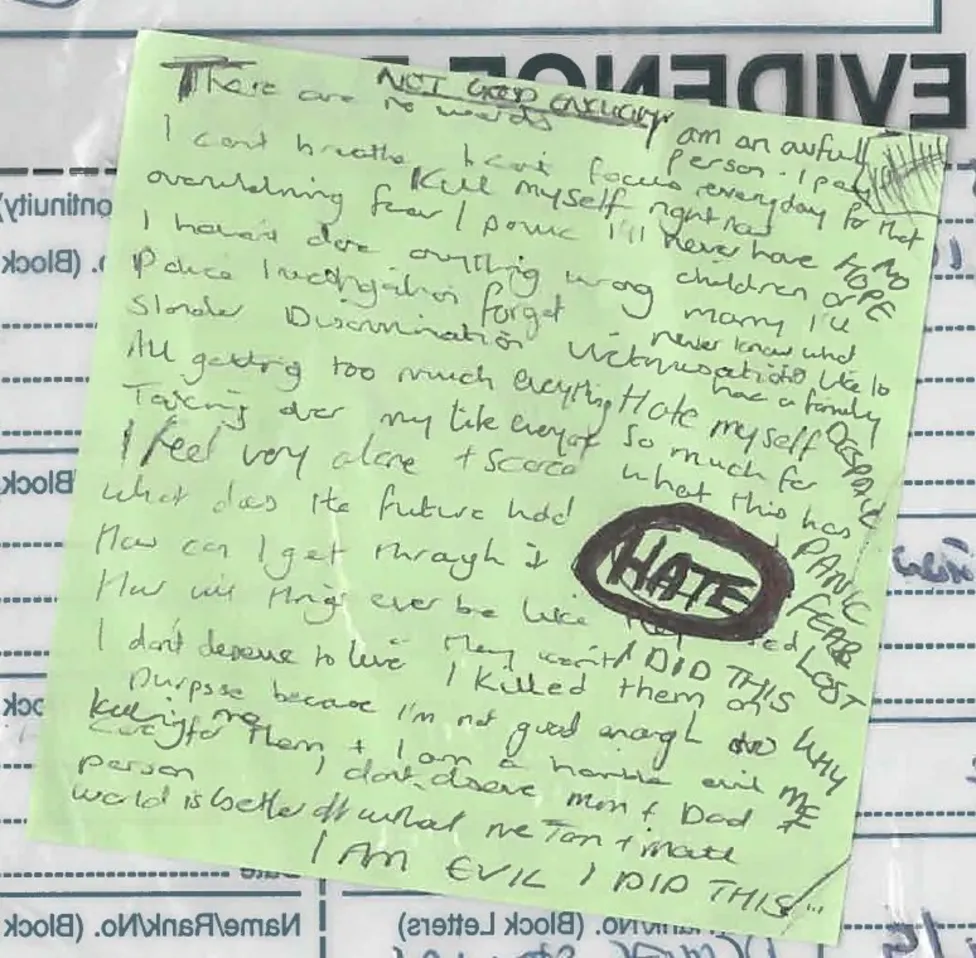 EVIDENCE
NOT GOOD ENOUGH
There are no words
I am an awful person. I pay
every day for that
I can't breathe I can't focus
Kill myself right now
overwhelming fear I panic I'll never have
children or marry I'll
never know what
it's like to have a family
NO HOPE
I haven't done anything wrong
Police investigation forget
Slander Discrimination Victimisation
All getting too much everything
Hate myself
so much for
what this has
Taking over my life
I feel very alone + scared
what does the future hold
How can I get through it
How will things ever be like
HATE
DESPAIR
PANIC
FEAR
LOST
WHY
ME
I don't deserve to live
I DID THIS
I killed them on
purpose because I'm not good enough to
care for them + I am a horrible evil
person
Killing me
I don't deserve mum + Dad
world is better off without me
I AM EVIL I DID THIS
Continuity)
(Block
(Block
Name/Rank/No. (Block
/No. (Block Letters)